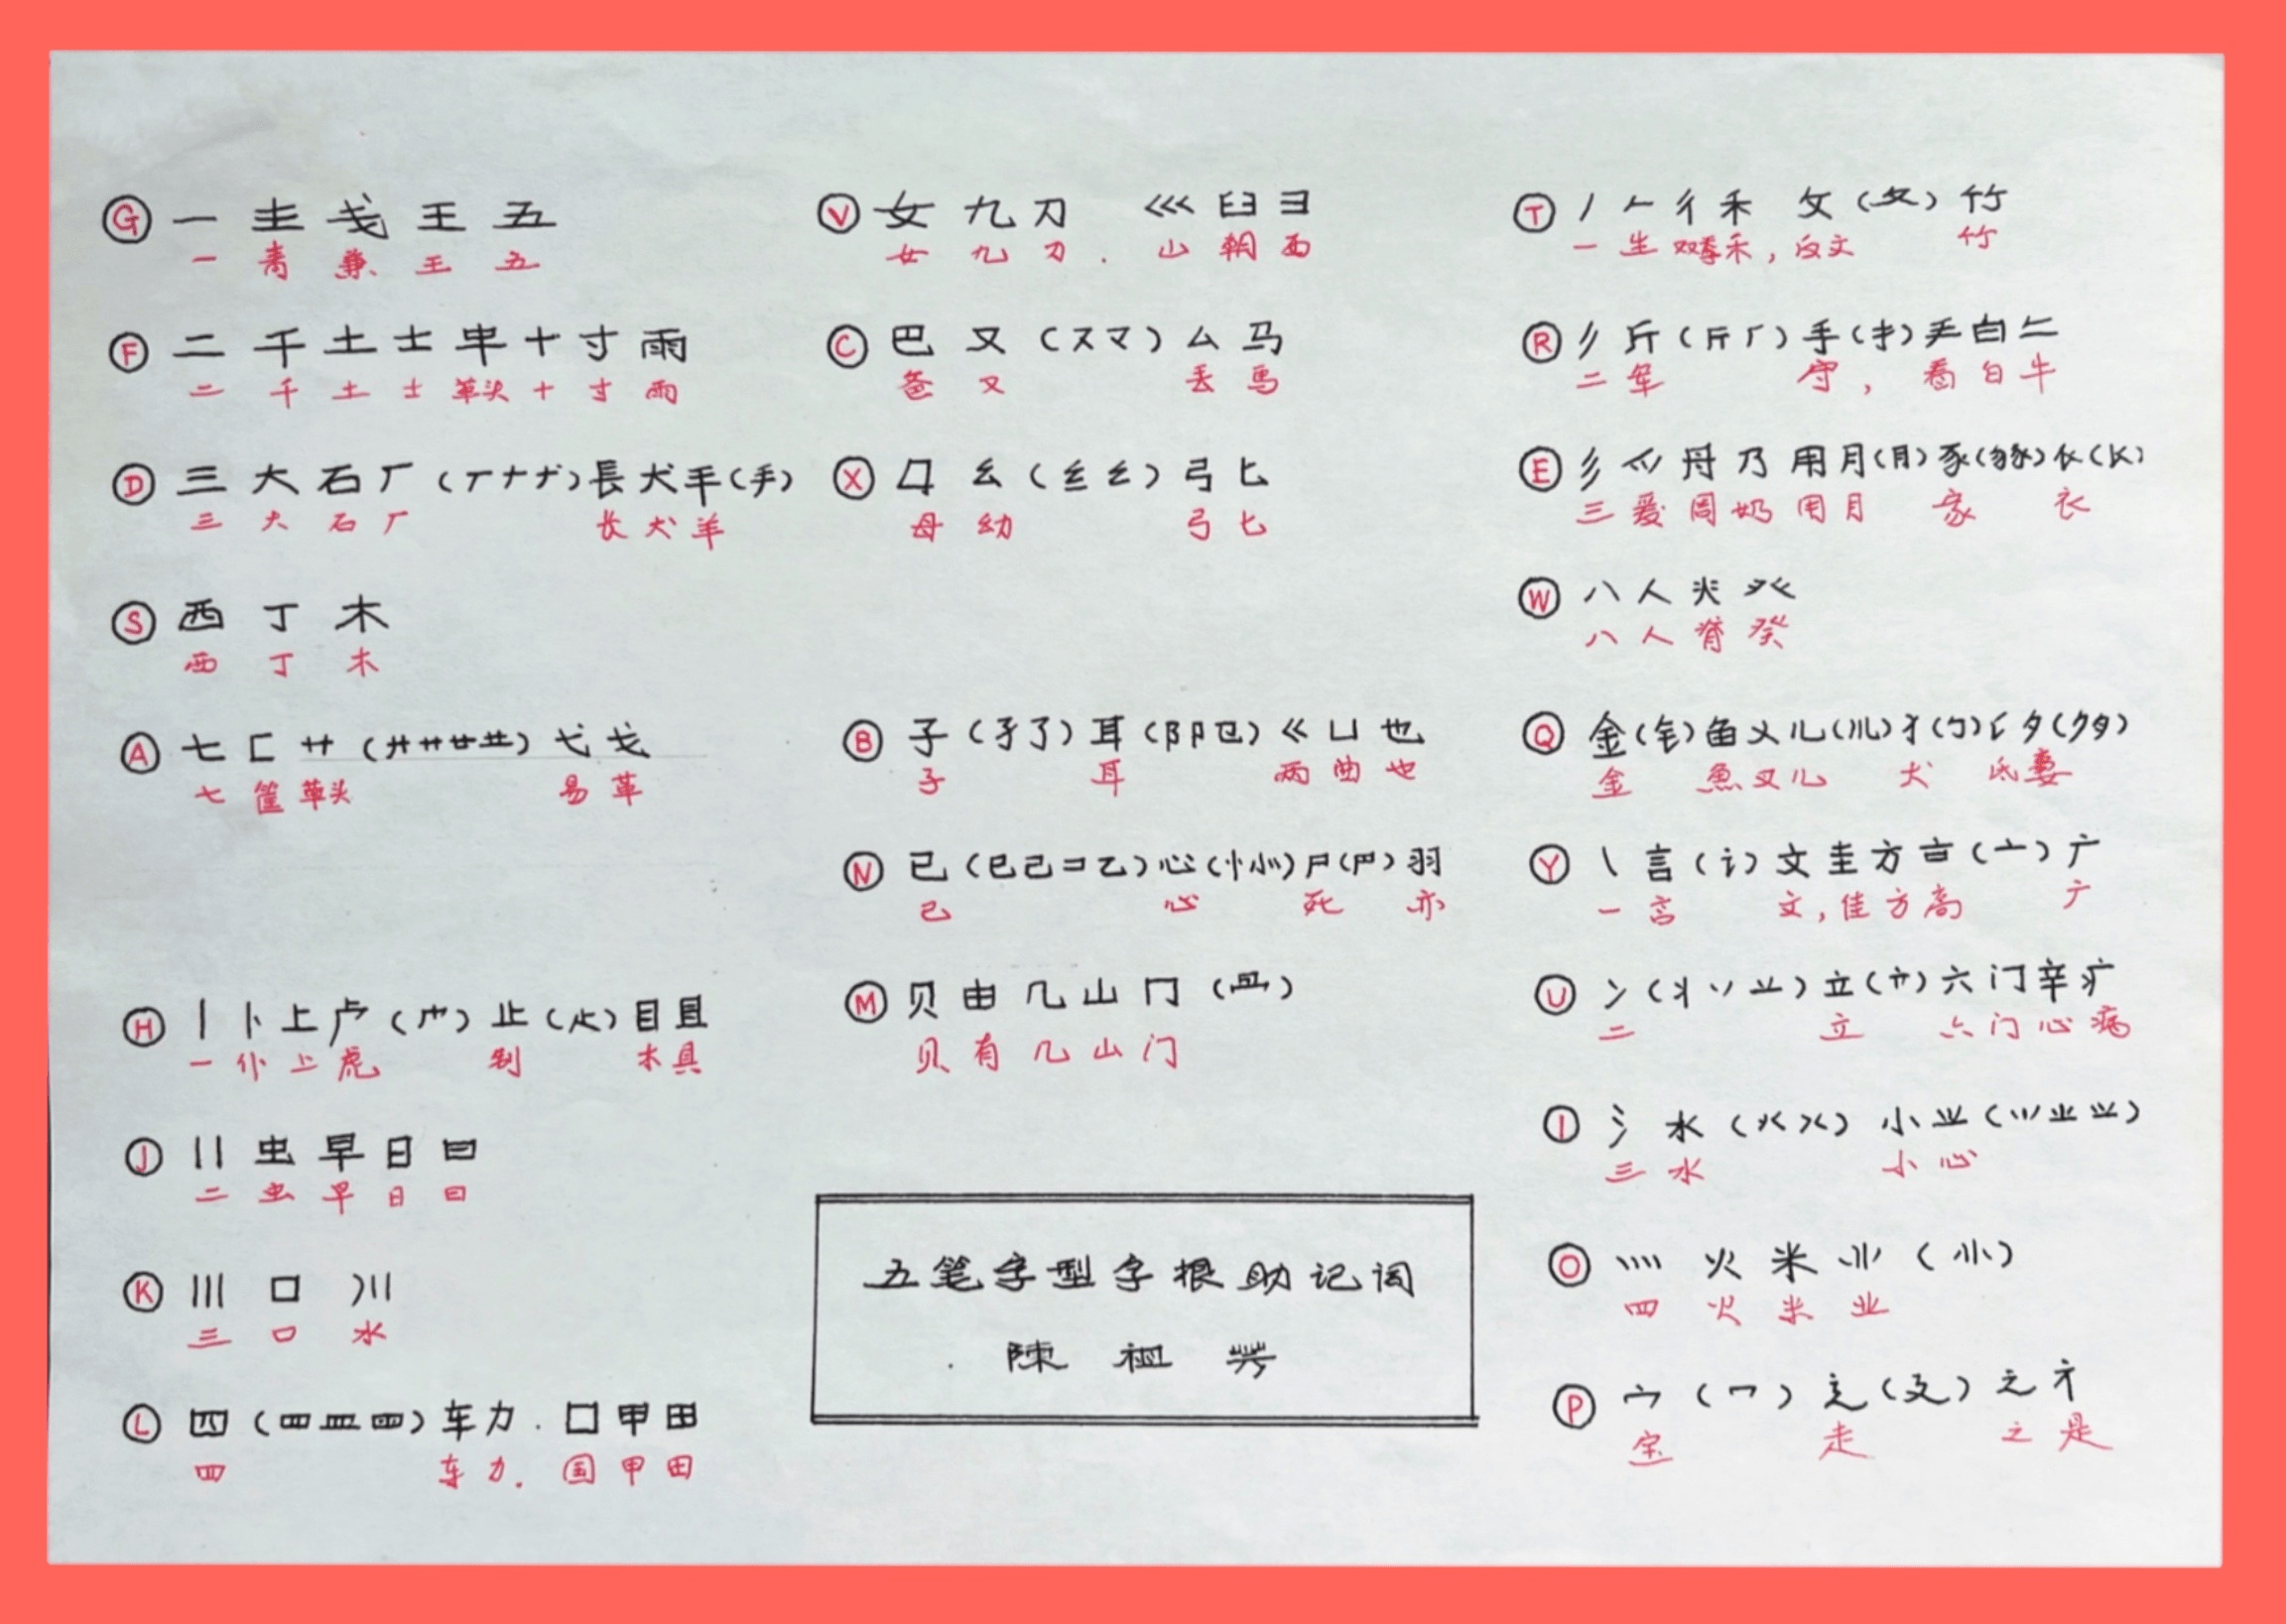 G 一 龶 戋 王 五
一 青 兼 王 五
F 二 千 土 士 十 寸 雨
二 千 土 士 革头 十 寸 雨
D 三 大 石 厂 (丆ナ𠂇) 镸 犬 (手)
三 大 石 厂 长 犬 羊
S 西 丁 木
西 丁 木
A 七 匚 艹 (廾卄廿龷) 弋 戈
七 筐 草头 易 革
H 丨 卜 上 虍 止 (龰) 目 且
一 仆 上 虎 别 木 具
J 〢 虫 早 日 曰
二 虫 早 日 曰
K 川 口
三 口 水
L 四 (罒皿) 车 力 . 囗 甲 田
四 车 力 . 国 甲 田
V 女 九 刀 巛 臼 彐
女 九 刀 . 山 朝 西
C 巴 又 (ヌマ) 厶 马
爸 又 丢 马
X 幺 (纟) 弓 匕
母 幼 弓 匕
B 子 (孑了) 耳 (阝卩㔾) 巜 凵 也
子 耳 两 曲 也
N 已 (巳己コ乙) 心 (忄㣺) 尸 羽
己 心 死 亦
M 贝 由 几 山 冂 (罒)
贝 有 几 山 门
五笔字型字根助记词
陳 祖
T 丿 𠂉 彳 禾 攵 (夂) 竹
一 生 禾 , 反文 竹
R 斤 手 (扌) 龵 白
二 年 守 , 看 白 牛
E 彡 爫 丹 乃 用 月 豕
三 爱 周 奶 用 月 家 衣
W 八 人 癶
八 人 脊 癸
Q 金 (钅) 鱼 乂 儿 犭 (勹) 夕
金 魚 又 儿 犬 氏
Y 丶 言 (讠) 文 圭 方 (亠) 广
一 言 文 , 佳 方 高 广
U 冫 (丬丷) 立 六 门 辛 疒
二 立 六 门 心 病
I 氵 水 小
三 水 小 心
O 灬 火 米
四 火 米 业
P 宀 (冖) 辶 (廴) 之 礻
宝 走 之 是